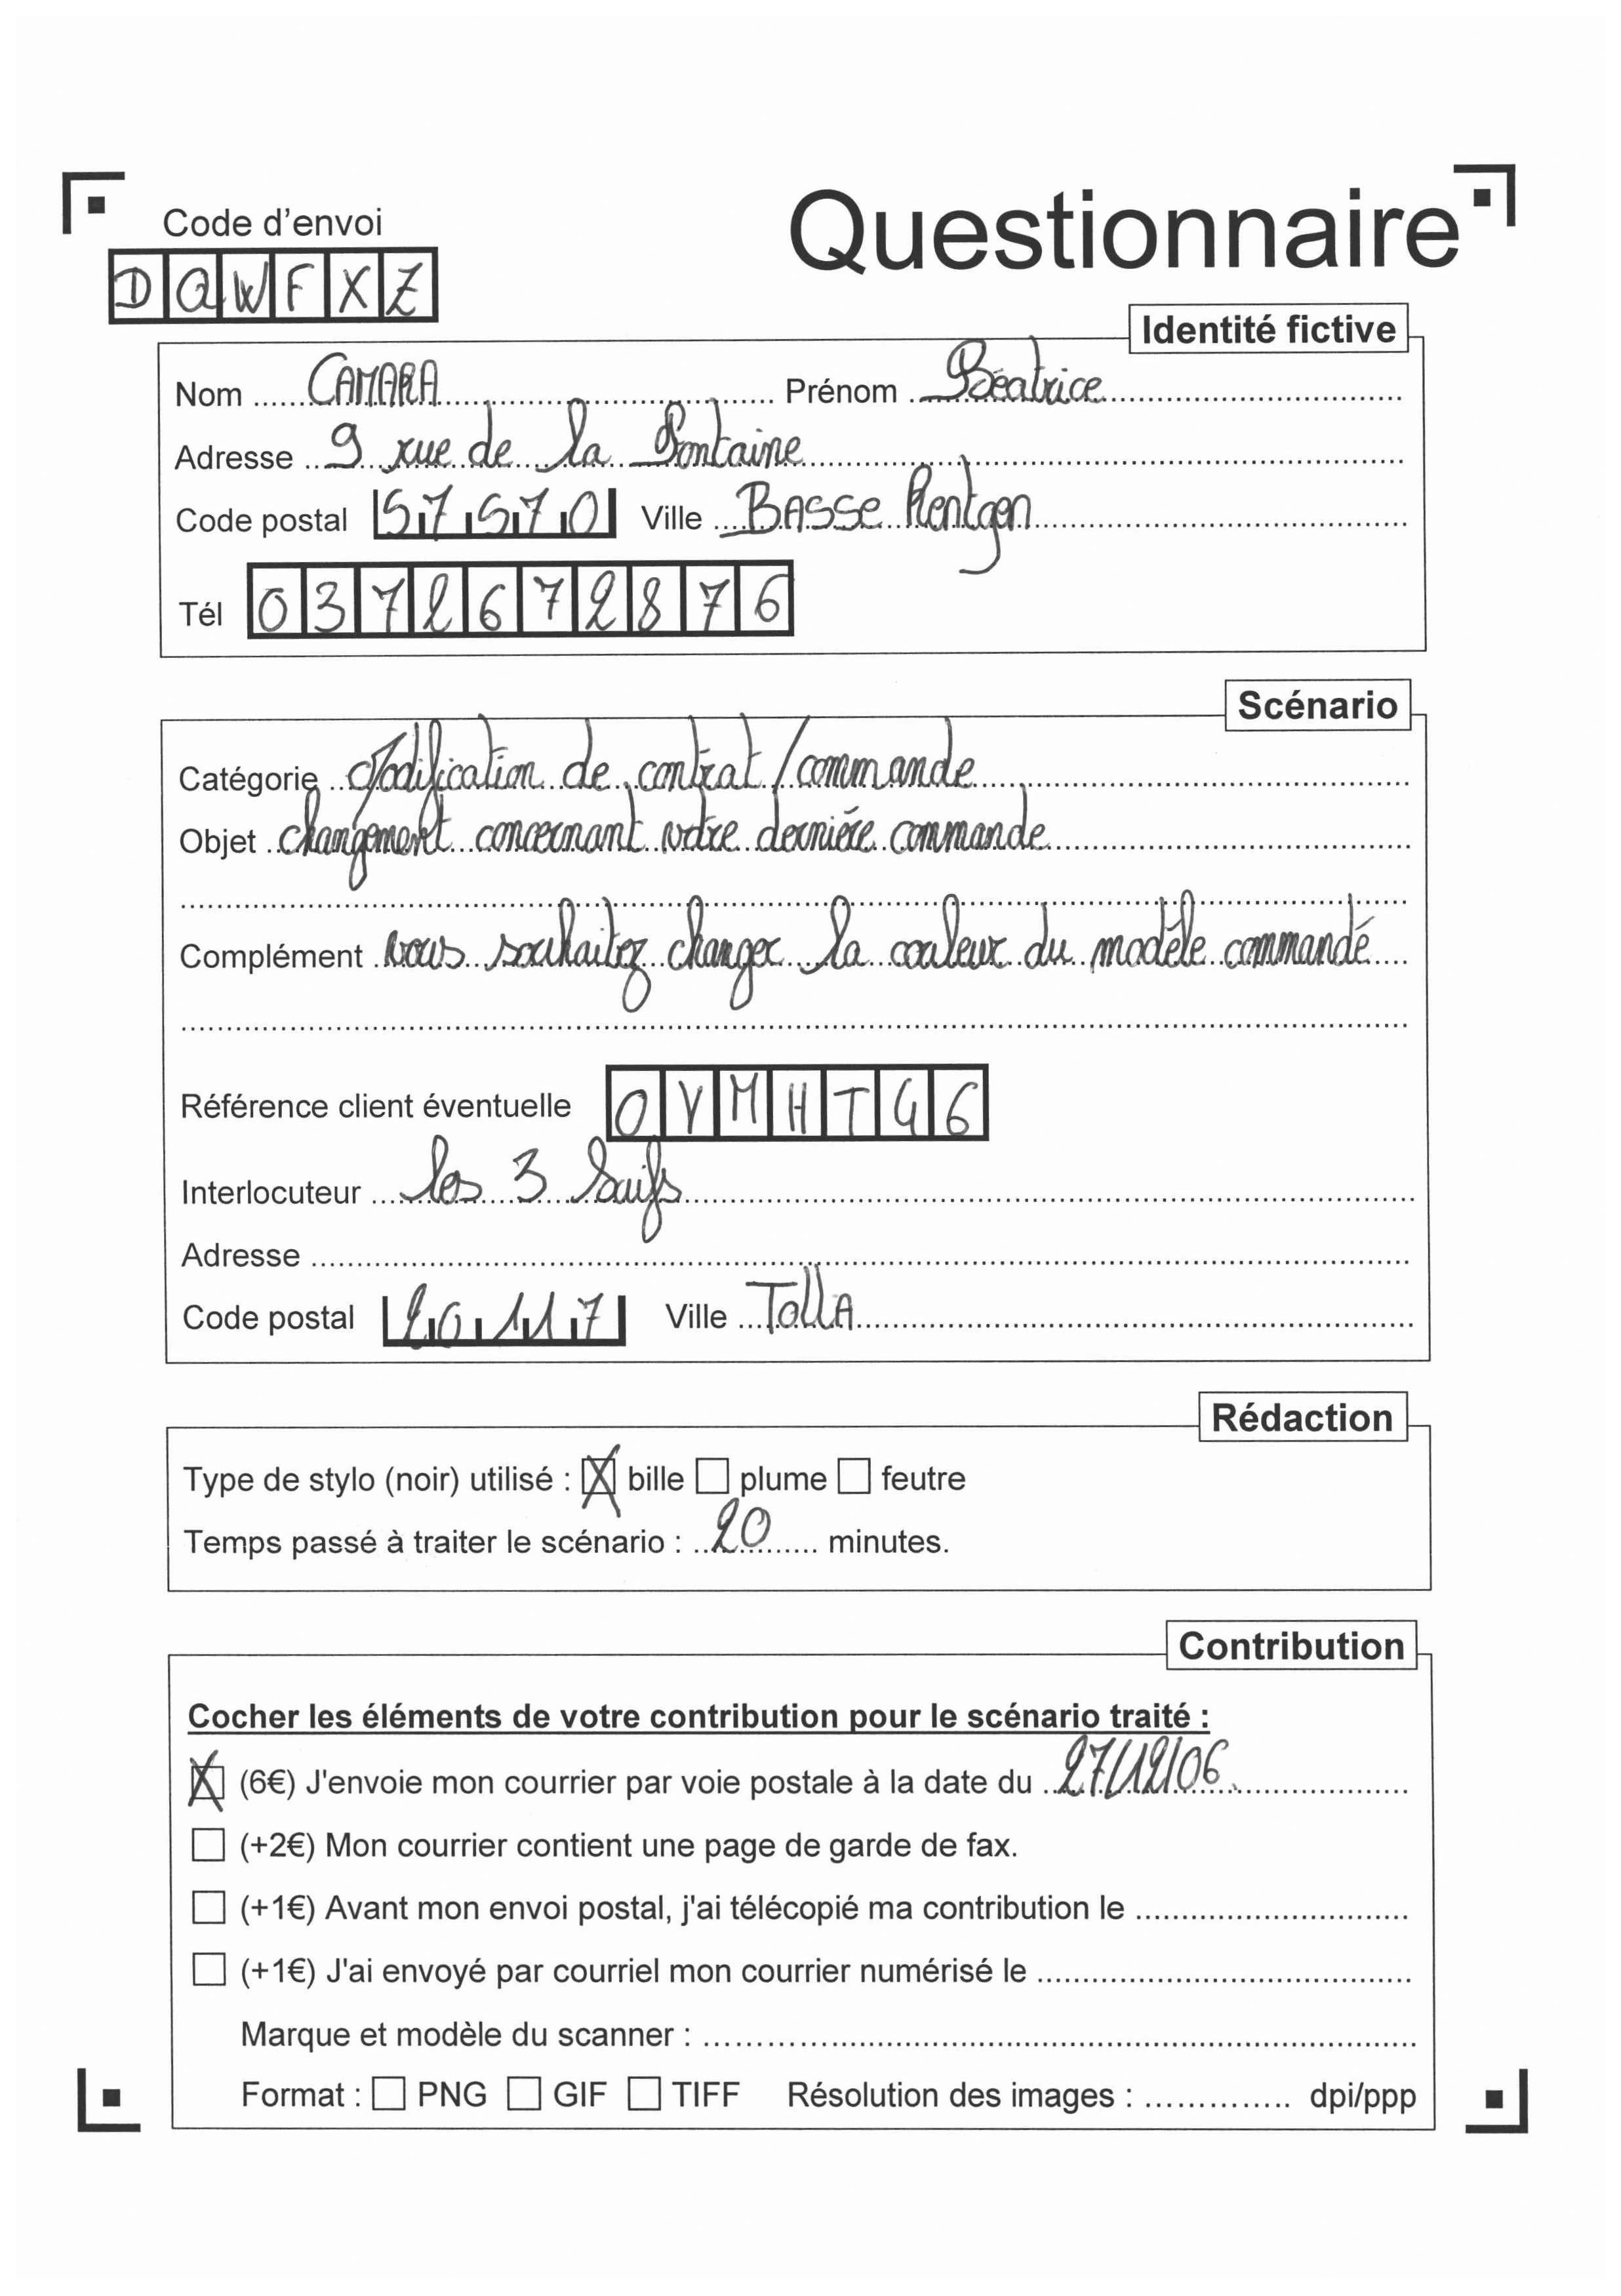 Code d'envoi
Questionnaire
DQWFXZ
Identité fictive
Nom CAMARA Prénom Béatrice
Adresse 9 rue de la fontaine
Code postal 57570 Ville BASSE Rentgen
Tél 0372672876
Scénario
Catégorie Modification de contrat / commande
Objet changement concernant votre dernière commande
Complément vous souhaitez changer la couleur du modèle commandé
Référence client éventuelle OYMHTG6
Interlocuteur les 3 Suifs
Adresse
Code postal 20117 Ville TollA
Rédaction
Type de stylo (noir) utilisé : bille plume feutre
Temps passé à traiter le scénario : 20 minutes.
Contribution
Cocher les éléments de votre contribution pour le scénario traité :
(6€) J'envoie mon courrier par voie postale à la date du 27/12/06.
(+2€) Mon courrier contient une page de garde de fax.
(+1€) Avant mon envoi postal, j'ai télécopié ma contribution le
(+1€) J'ai envoyé par courriel mon courrier numérisé le
Marque et modèle du scanner :
Format : PNG GIF TIFF Résolution des images : dpi/ppp